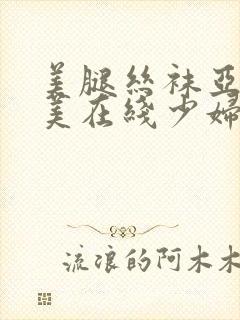 美腿丝袜亚
美在线少妇
流浪的阿木木